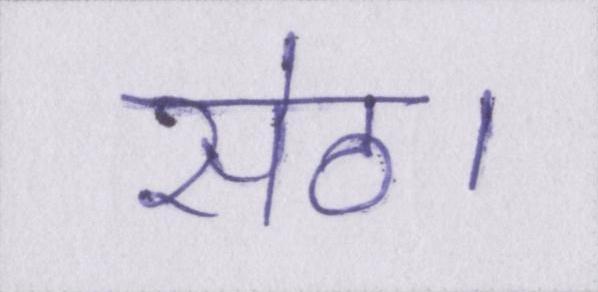 सेठ।